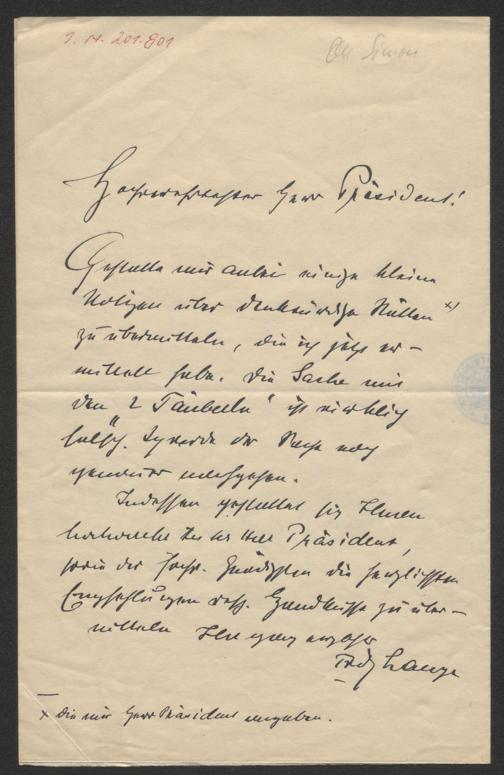 I. N. 201.801
Simon
Hochverehrtester Herr Präsident!
Gestatte mir anbei einige kleine
Notizen über denkwürdige Stätten x)
zu übermitteln, die ich jetzt er-
mittelt habe. Die Sache mit
den „2 Täuberln" ist wirklich
falsch. Ich werde der Sache noch
genauer nachgehen.
Indessen gestattet sich Ihnen
Herr Präsident,
sowie der hochv. Gnädigsten die herzlichsten
Empfehlungen zu über-
mitteln Ihr ganz ergebener
Fritz Lange
x die mir Herr Präsident angaben.